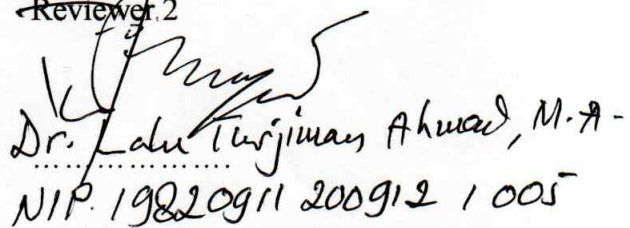 Reviewer 2
Dr. Lalu Turjiman Ahmad, M.A.
NIP. 19820911 200912 1 005